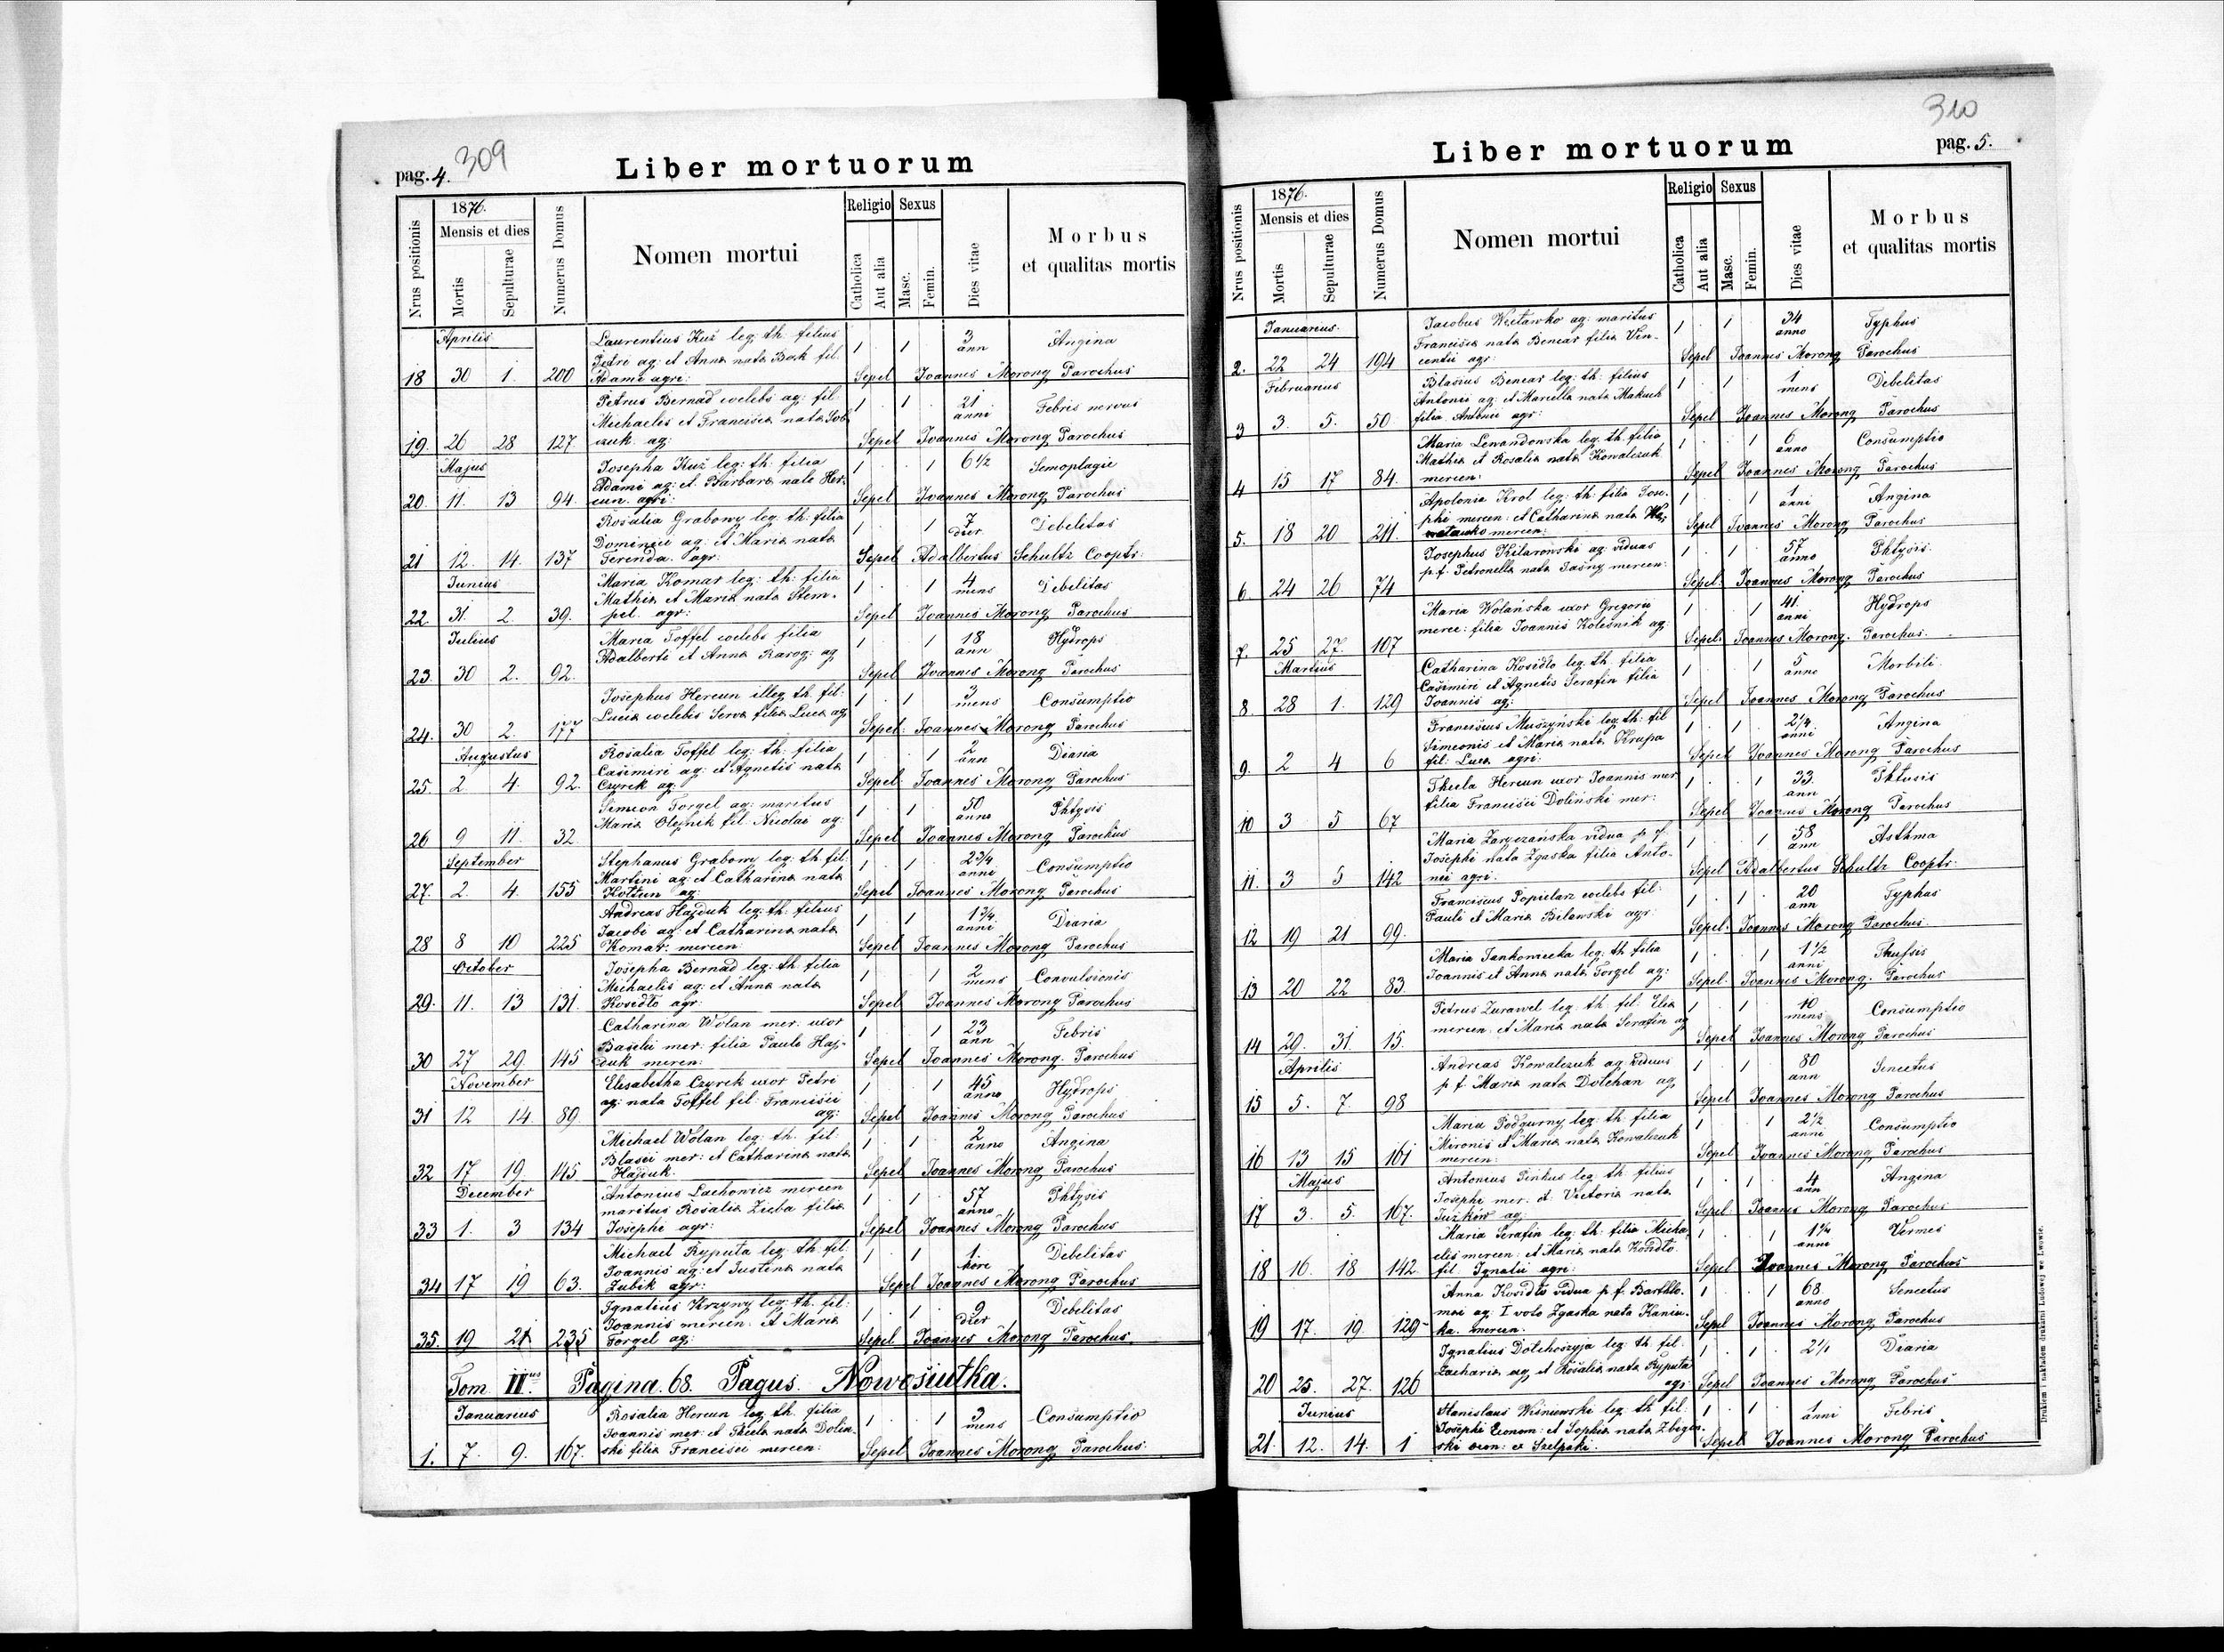 pag. 4. 309
Liber mortuorum
Nrus positionis
1876.
Mensis et dies
Mortis
Sepulturae
Numerus Domus
Nomen mortui
Religio
Catholica
Aut alia
Sexus
Masc.
Femin.
Dies vitae
Morbus
et qualitas mortis
Aprilis
Laurentius Kuź leg: th: filius
Petri ag: et Anna nata Bock fil.
18 30 1. 200 Adami agri: 1 1 3 ann Angina
Sepel Joannes Morong Parochus
Petrus Bernad coelebs ag: fil
Michaelis et Francisca nata Sob
19. 26 28 127 czuk ag: 1 1 21 anni Febris nervus
Sepel Joannes Morong Parochus
Majus
Josepha Kuź leg: th: filia
Adami ag: et Barbara nate Her
20 11. 13 94. cun agri: 1 1 6 1/2
Sepel Joannes Morong Parochus
Rosalia Grabowy leg: th: filia
Dominici ag: et Maria nata
21 12. 14. 137 Ferenda agr: 1 1 7 dier Debelitas
Sepel Adalbertus Schultz Cooptr:
Junius
Maria Komar leg: th: filia
Mathia et Maria nata Stem-
22. 31. 2. 39. pel. agr: 1 1 4 mens Debelitas
Sepel Joannes Morong Parochus
Julius
Maria Toffel coelebs filia
Adalberti et Anna Rarog: ag
23. 30 2. 92. 1 1 18 ann Hydrops
Sepel Joannes Morong Parochus
Josephus Hercun illeg th: fil:
Lucia coelebis Serva filia Luca ag
24. 30 2. 177 1 1 3 mens Consumptio
Sepel: Joannes Morong Parochus
Augustus
Rosalia Toffel leg: th: filia
Casimiri ag: et Agnetis nata
25 2 4. 92. Czyrek ag: 1 1 2 ann Diaria
Sepel Joannes Morong Parochus
Simeon Torgel ag: maritus
Maria Olejnik fil Nicolai ag:
26 9 11. 32. 1 1 50 anno Phtysis
Sepel Joannes Morong Parochus
September
Stephanus Grabowy leg: th: fil:
Martini ag: et Catharina nata
27. 2. 4. 155 Kotzun ag: 1 1 2 3/4 anni Consumptio
Sepel Joannes Morong Parochus
Andreas Hajduk leg: th: filius
Jacobi ag: et Catharina nata
28 8 10 225 Komar: mercen: 1 1 1 3/4 anni Diaria
Sepel Joannes Morong Parochus
October
Josepha Bernad leg: th: filia
Michaelis ag: et Anna nata
29. 11. 13 131. Kosidło agr: 1 1 2 mens Convulsionis
Sepel Joannes Morong Parochus
Catharina Wolan mer: uxor
Basilii mer: filia Paulo Haj-
30 27 29 145 duk mercen: 1 1 23 ann Febris
Sepel Joannes Morong Parochus
November
Elisabetha Czyrek uxor Petri
ag: nata Toffel fil: Francisci
31 12 14. 89. ag: 1 1 45 anno Hydrops
Sepel Joannes Morong Parochus
Michael Wolan leg: th: fil:
Blasii mer: et Catharina nata
32 17 19 145 Hajduk. 1 1 2 anno Angina
Sepel Joannes Morong Parochus
December
Antonius Lachowicz mercen
maritus Rosalia Zieba filia
33 1. 3 134 Josephi agr: 1 1 57 anno Phtysis
Sepel Joannes Morong Parochus
Michael Ryputa leg: th: fil:
Joannis ag: et Justena nata
34 17 19 63. Zubik agr: 1 1 1. hore Debelitas
Sepel Joannes Morong Parochus
Ignatius Krzywy leg: th: fil:
Joannis mercen: et Maria
35. 19 21 235 Torgel ag: 1 1 9 dier Debelitas
Sepel Joannes Morong Parochus
Tom IIus Pagina. 68. Pagus. Nowosiułka.
Januarius
Rosalia Hercun leg: th. filia
Joannis mer: et Thecla nata Dolin-
1. 7. 9. 167. ski filia Francisci mercen: 1 1 3 mens Consumptio
Sepel Joannes Morong Parochus
310
Liber mortuorum pag. 5.
Nrus positionis
1876.
Mensis et dies
Mortis
Sepulturae
Numerus Domus
Nomen mortui
Religio
Catholica
Aut alia
Sexus
Masc.
Femin.
Dies vitae
Morbus
et qualitas mortis
Januarius.
Jacobus ag: maritus
Francisca nata Benear filia Vin-
2. 22 24 194 centii agr: 1 1 34 anno Typhus
Sepel Joannes Morong Parochus
Februarius
Blasius Benear leg: th: filius
Antonii ag: et Marcella nata Makuch
3 3. 5. 50 filia Antonii agr: 1 1 1 mens Debelitas
Sepel Joannes Morong Parochus
Maria Lewandowska leg. th. filia
Mathia et Rosalia nata Kowalczuk
4 15 17 84. mercen: 1 1 6 anno Consumptio
Sepel Joannes Morong Parochus
Apolonia Krol leg: th: filia Jose-
phi mercen: et Catharina nata
5. 18 20 211. mercen: 1 1 1 anni Angina
Sepel Joannes Morong Parochus
Josephus Kilarowski ag: viduus
p.f. Petronella nata Jasny mercen:
6. 24 26 74 1 1 57 anno Phtysis.
Sepel. Joannes Morong Parochus
Maria Wolańska uxor Gregorii
merce: filia Joannis Kolesnik ag:
7. 25 27. 107 1 1 41. anni Hydrops
Sepel. Joannes Morong. Parochus.
Martius
Catharina Kosidło leg. th. filia
Casimiri et Agnetis Serafin filia
8. 28 1. 129 Joannis ag: 1 1 5 anno Morbili
Sepel Joannes Morong Parochus
Franciscus Muszyński leg: th: fil
Simeonis et Maria nata Krupa
9. 2 4 6 fil: Luca agri: 1 1 2 1/4 anni Angina
Sepel Joannes Morong Parochus
Thecla Hercun uxor Joannis mer
filia Francisci Doliński mer:
10 3 5 67 1 1 33 ann Phtusis
Sepel Joannes Morong Parochus
Maria Zaryczańska vidua p f.
Josephi nata Zgaska filia Anto-
11. 3 5 142 nii agri: 1 1 58 ann Asthma
Sepel Adalbertus Schultz Cooptr:
Franciscus Popielarz coelebs fil:
Pauli et Maria Bilawski agr:
12 19 21 99. 1 1 20 ann Typhus
Sepel. Joannes Morong Parochus.
Maria Jankowiecka leg: th filia
Joannis et Anna nata Torgel ag:
13 20 22 83. 1 1 1 1/2 anni
Sepel. Joannes Morong. Parochus
Petrus Zurawel leg th fil: Elia
mercen: et Maria nata Serafin ag
14 29. 31. 15. 1 1 10 mens Consumptio
Sepel Joannes Morong Parochus
Aprilis
Andreas Kowalczuk ag: viduus
p f. Maria nata Dolchan ag
15 5. 7. 98 1 1 80 ann Senectus
Sepel Joannes Morong Parochus
Maria Podgurny leg: th: filia
Mironis et Maria nata Kowalczuk
16 13 15 161 mercen: 1 1 2 1/2 anni Consumptio
Sepel Joannes Morong Parochus
Majus
Antonius Pinkus leg: th: filius
Josephi mer: et Victoria nata
17 3. 5. 167. ag: 1 1 4 ann Angina
Sepel Joannes Morong Parochus
Maria Serafin leg: th: filia Micha
elis mercen: et Maria nata
18 16. 18 142. fil. Ignatii agri: 1 1 1 1/4 anni Vermes
Sepel Joannes Morong Parochus
Anna Kosidło vidua p f. Barthlo-
mai ag: I voto Zgaska nata Kaniu-
19 17. 19. 129 ka. mercen. 1 1 68 anno Senectus
Sepel Joannes Morong Parochus
Ignatius Dolchoszyja leg: th: fil.
Zacharia ag. et Rosalia nata Ryputa
20 25. 27. 126 agr: 1 1 Diaria
Sepel Joannes Morong Parochus
Junius
Stanislaus Wiśniewski leg th fil:
Josephi Econom: et Sophia nata Zbign-
21. 12. 14. 1 ski 1 1 1 anni Febris
Sepel Joannes Morong Parochus
Drukiem i nakładem drukarni Ludowej we Lwowie.